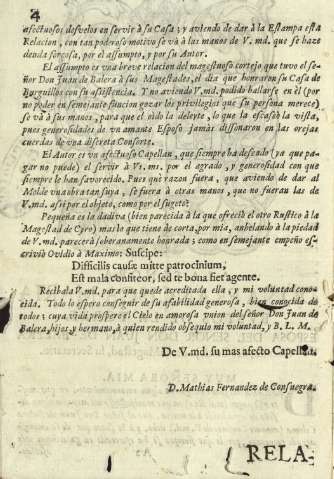 4
afectuosos desvelos en servir à su Casa; y aviendo de dàr à la Estampa esta
Relacion, con tan poderoso motivo se và à las manos de V.md. que se haze
deuda forçosa, por el assumpto, y por su Autor.
El assumpto es una breve relacion del magestuoso cortejo que tuvo el se-
ñor Don Juan de Balera à sus Magestades, el dia que honraron su Casa de
Burguillos con su assistencia. Y no aviendo V.md. podido hallarse en èl (por
no poder en semejante funcion gozar los privilegios que su persona merece)
se và à sus manos, para que el oìdo la deleyte, lo que la escasèò la vista,
pues generosidades de un amante Esposo jamàs dissonaron en las orejas
cuerdas de una discreta Consorte.
El Autor es un afectuoso Capellan, que siempre ha deseado (ya que pa-
gar no puede) el servir à V.mi. por el agrado, y generosidad con que
siempre le han favorecido. Pues què razon fuera, que aviendo de dàr al
Molde una obra tan suya, se fuera à otras manos, que no fueran las de
V.md. assi por el objeto, como por el sugeto?
Pequeña es la dadiva (bien parecida à la que ofreciò el otro Rustico à la
Magestad de Cyro) mas lo que tiene de corta, por mia, anhelando à la piedad
de V.md. parecerà soberanamente honrada; como en semejante empeño es-
criviò Ovidio à Maximo: Suscipe:
Difficilis causæ mitte patrocinium,
Est mala confiteor, sed te bona fiet agente.
Recibala V.md. para que quede acreditada ella, y mi voluntad cono-
cida. Todo lo espero conseguir de su afabilidad generosa, bien conocida de
todos; cuya vida prospere el Cielo en amorosa vnion del señor Don Juan de
Balera, hijos, y hermano, à quien rendido obsequio mi voluntad, y B. L. M.
De V.md. su mas afecto Capellan.
D. Mathias Fernandez de Consuegra.
RELA-